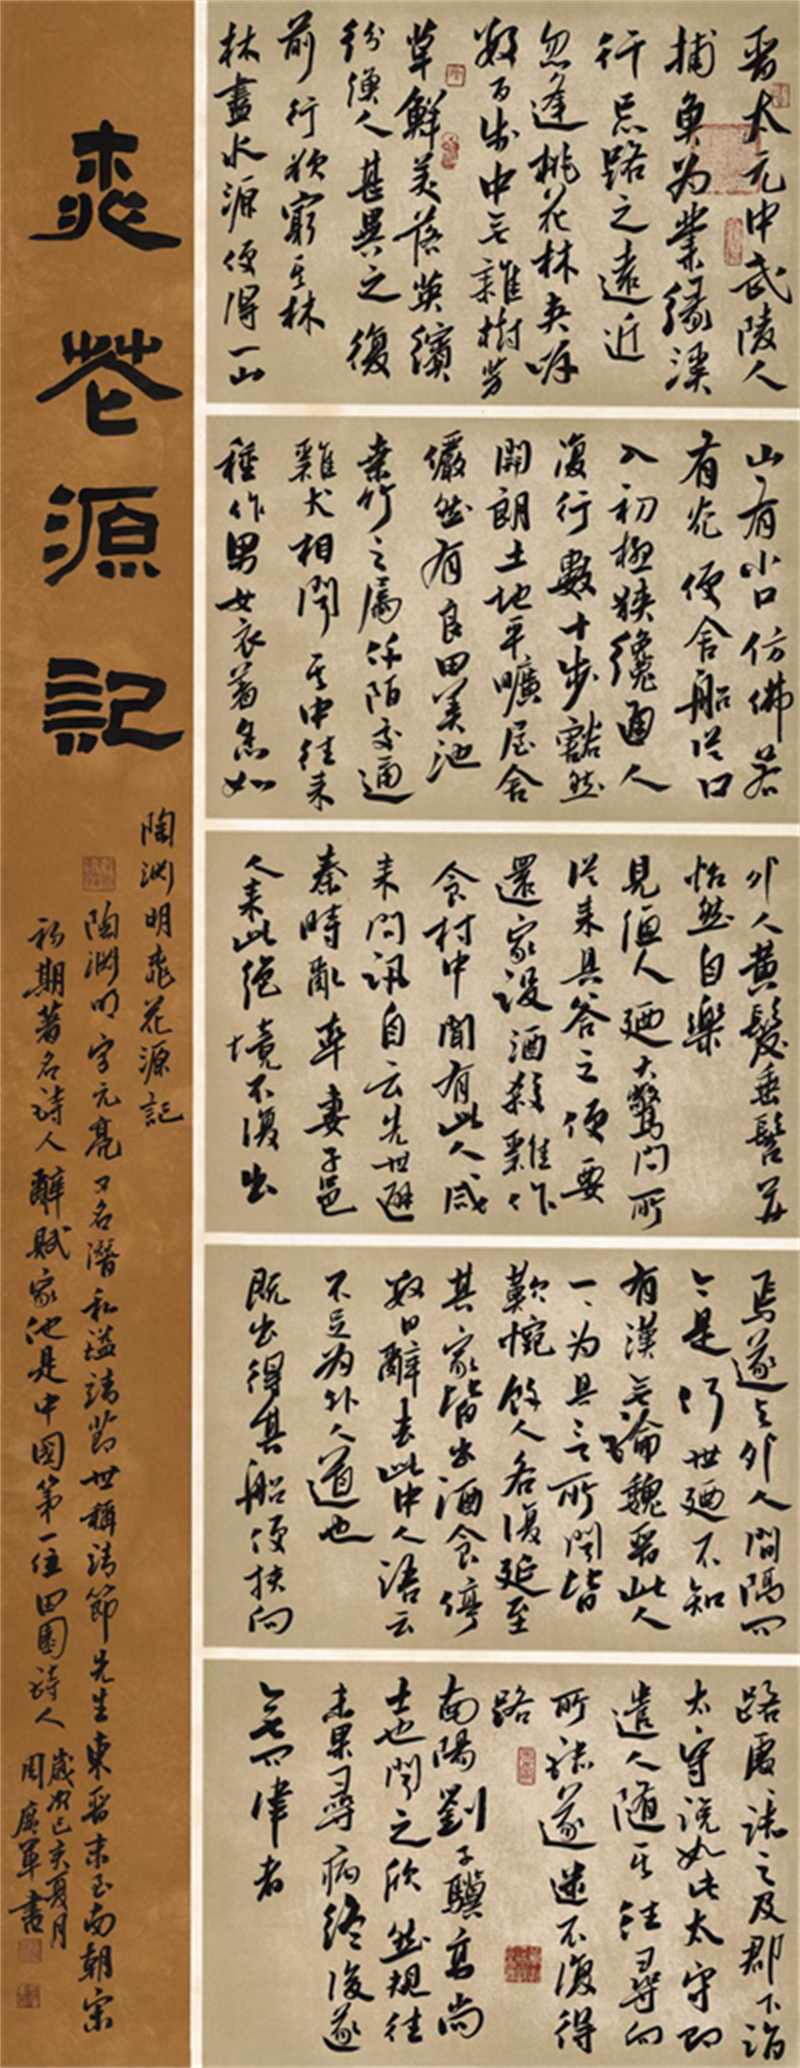 桃花源記
晋太元中武陵人
捕魚为業緣溪
行忘路之遠近
忽逢桃花林夹岸
數百步中無雜樹芳
草鮮美落英繽
紛漁人甚異之復
前行欲窮其林
林盡水源便得一山
山有小口仿佛若
有光便舍船從口
入初極狹纔通人
復行數十步豁然
開朗土地平曠屋舍
儼然有良田美池
桑竹之屬阡陌交通
雞犬相聞其中往来
種作男女衣著悉如
外人黄髮垂髫并
怡然自樂
見漁人廼大驚问所
從来具答之便要
還家設酒殺雞作
食村中聞有此人咸
来问訊自云先世避
秦時亂率妻子邑
人来此绝境不復出
焉遂與外人間隔问
今是何世廼不知
有漢無論魏晋此人
一一为具言所聞皆
歎惋餘人各復延至
其家皆出酒食停
數日辭去此中人語云
不足为外人道也
既出得其船便扶向
路處處誌之及郡下詣
太守说如此太守即
遣人随其往尋向
所誌遂迷不復得
路
南陽劉子驥高尚
士也聞之欣然規往
未果尋病终後遂
無问津者
陶渊明桃花源記
陶渊明字元亮又名潛私謚靖節世稱靖節先生東晋末至南朝宋
初期著名诗人辭賦家他是中國第一位田園诗人
歲次己亥夏月
周廣軍書